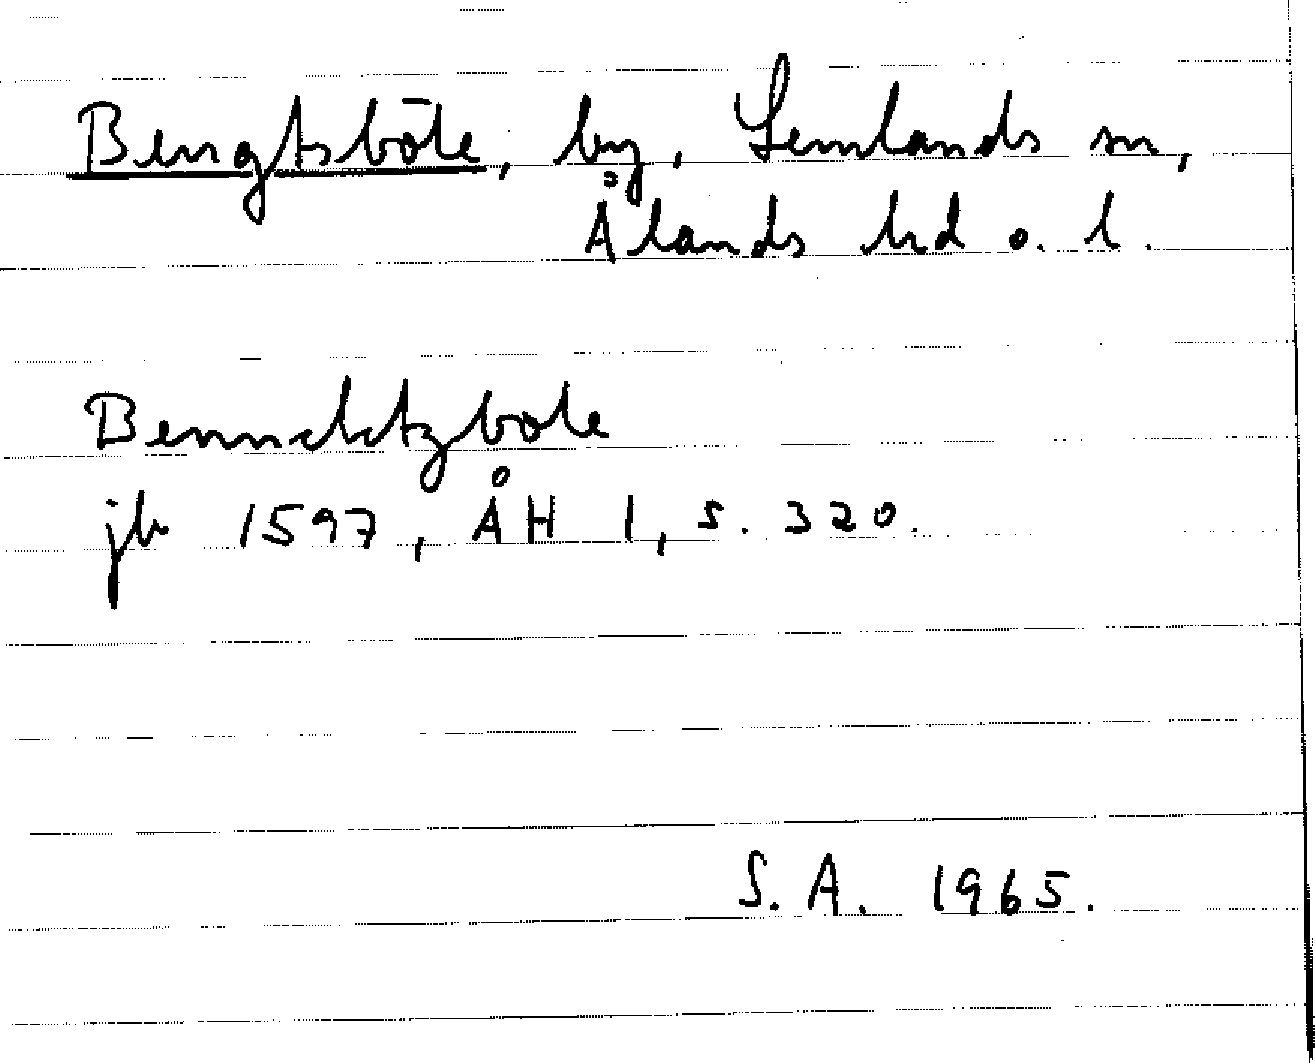 Bengtsböle, by, Lemlands sn,
Ålands hd o. l.
Benncktzbole
jb 1597, ÅH 1, s. 320.
S. A. 1965.